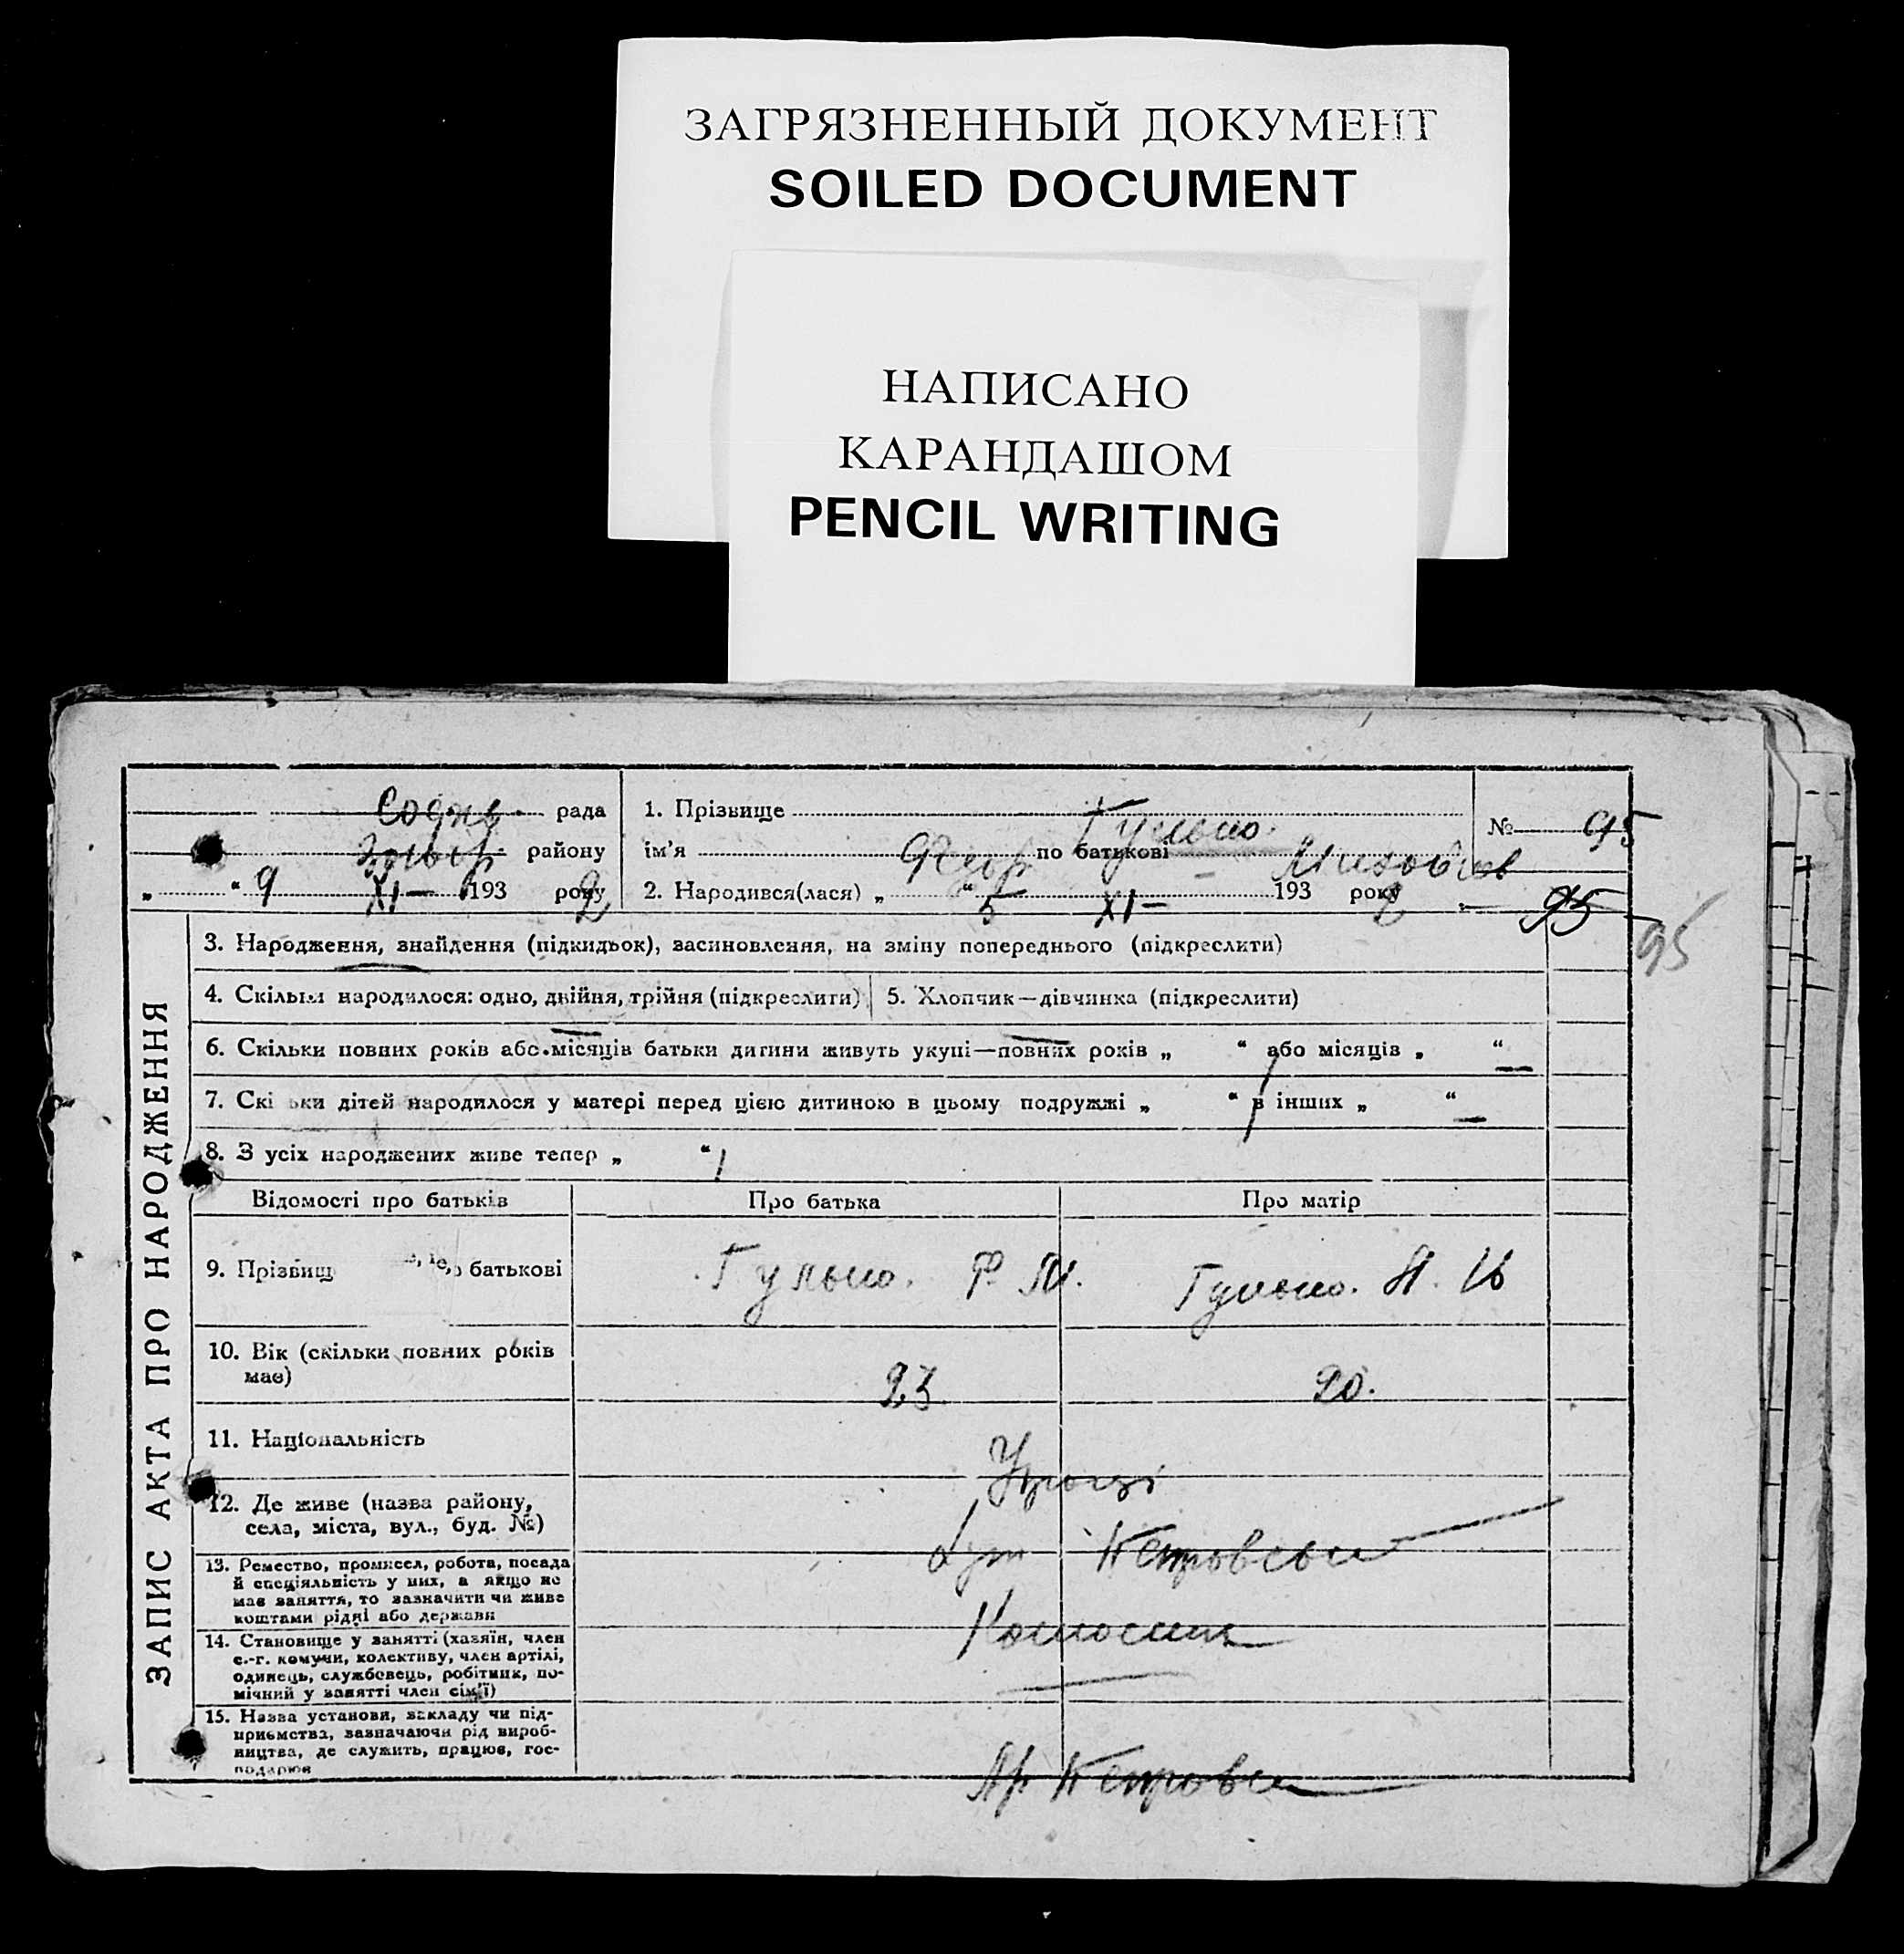 ЗАГРЯЗНЕННЫЙ ДОКУМЕНТ
SOILED DOCUMENT
НАПИСАНО
КАРАНДАШОМ
PENCIL WRITING
ЗАПИС АКТА ПРО НАРОДЖЕННЯ
рада
району
„ “ 9 XI– 193 2 року
1. Прізвище Гулько.
ім’я по батькові
2. Народився(лася) „ “ 5 XI– 193 2 року
№ 95
95
95
3. Народження, знайдення (підкидьок), засиновлення, на зміну попереднього (підкреслити)
4. Скільки народилося: одно, двійня, трійня (підкреслити)
5. Хлопчик—дівчинка (підкреслити)
6. Скільки повних років або місяців батьки дитини живуть укупі—повних років „ “ або місяців „ “
7. Скі ьки дітей народилося у матері перед цією дитиною в цьому подружжі „ “ в інших „ “
8. З усіх народжених живе тепер „ “ 1
Відомості про батьків
Про батька
Про матір
9. Прізвищ батькові
Гулько. Ф. М.
Гулько. Н.
10. Вік (скільки повних років
має)
23
20.
11. Національність
12. Де живе (назва району,
села, міста, вул., буд. №)
Петровськ
13. Ремество, промисел, робота, посада
й спеціяльність у них, а якщо не
має заняття, то зазначити чи живе
коштами рідні або держави
14. Становище у занятті (хазяїн, член
с.-г. комуни, колективу, член артілі,
одинець, службовець, робітник, по-
мічний у занятті член сім’ї)
15. Назва установи, закладу чи під-
приємства, зазначаючи рід вироб-
ництва, де служить, працює, гос-
подарює
Петровс